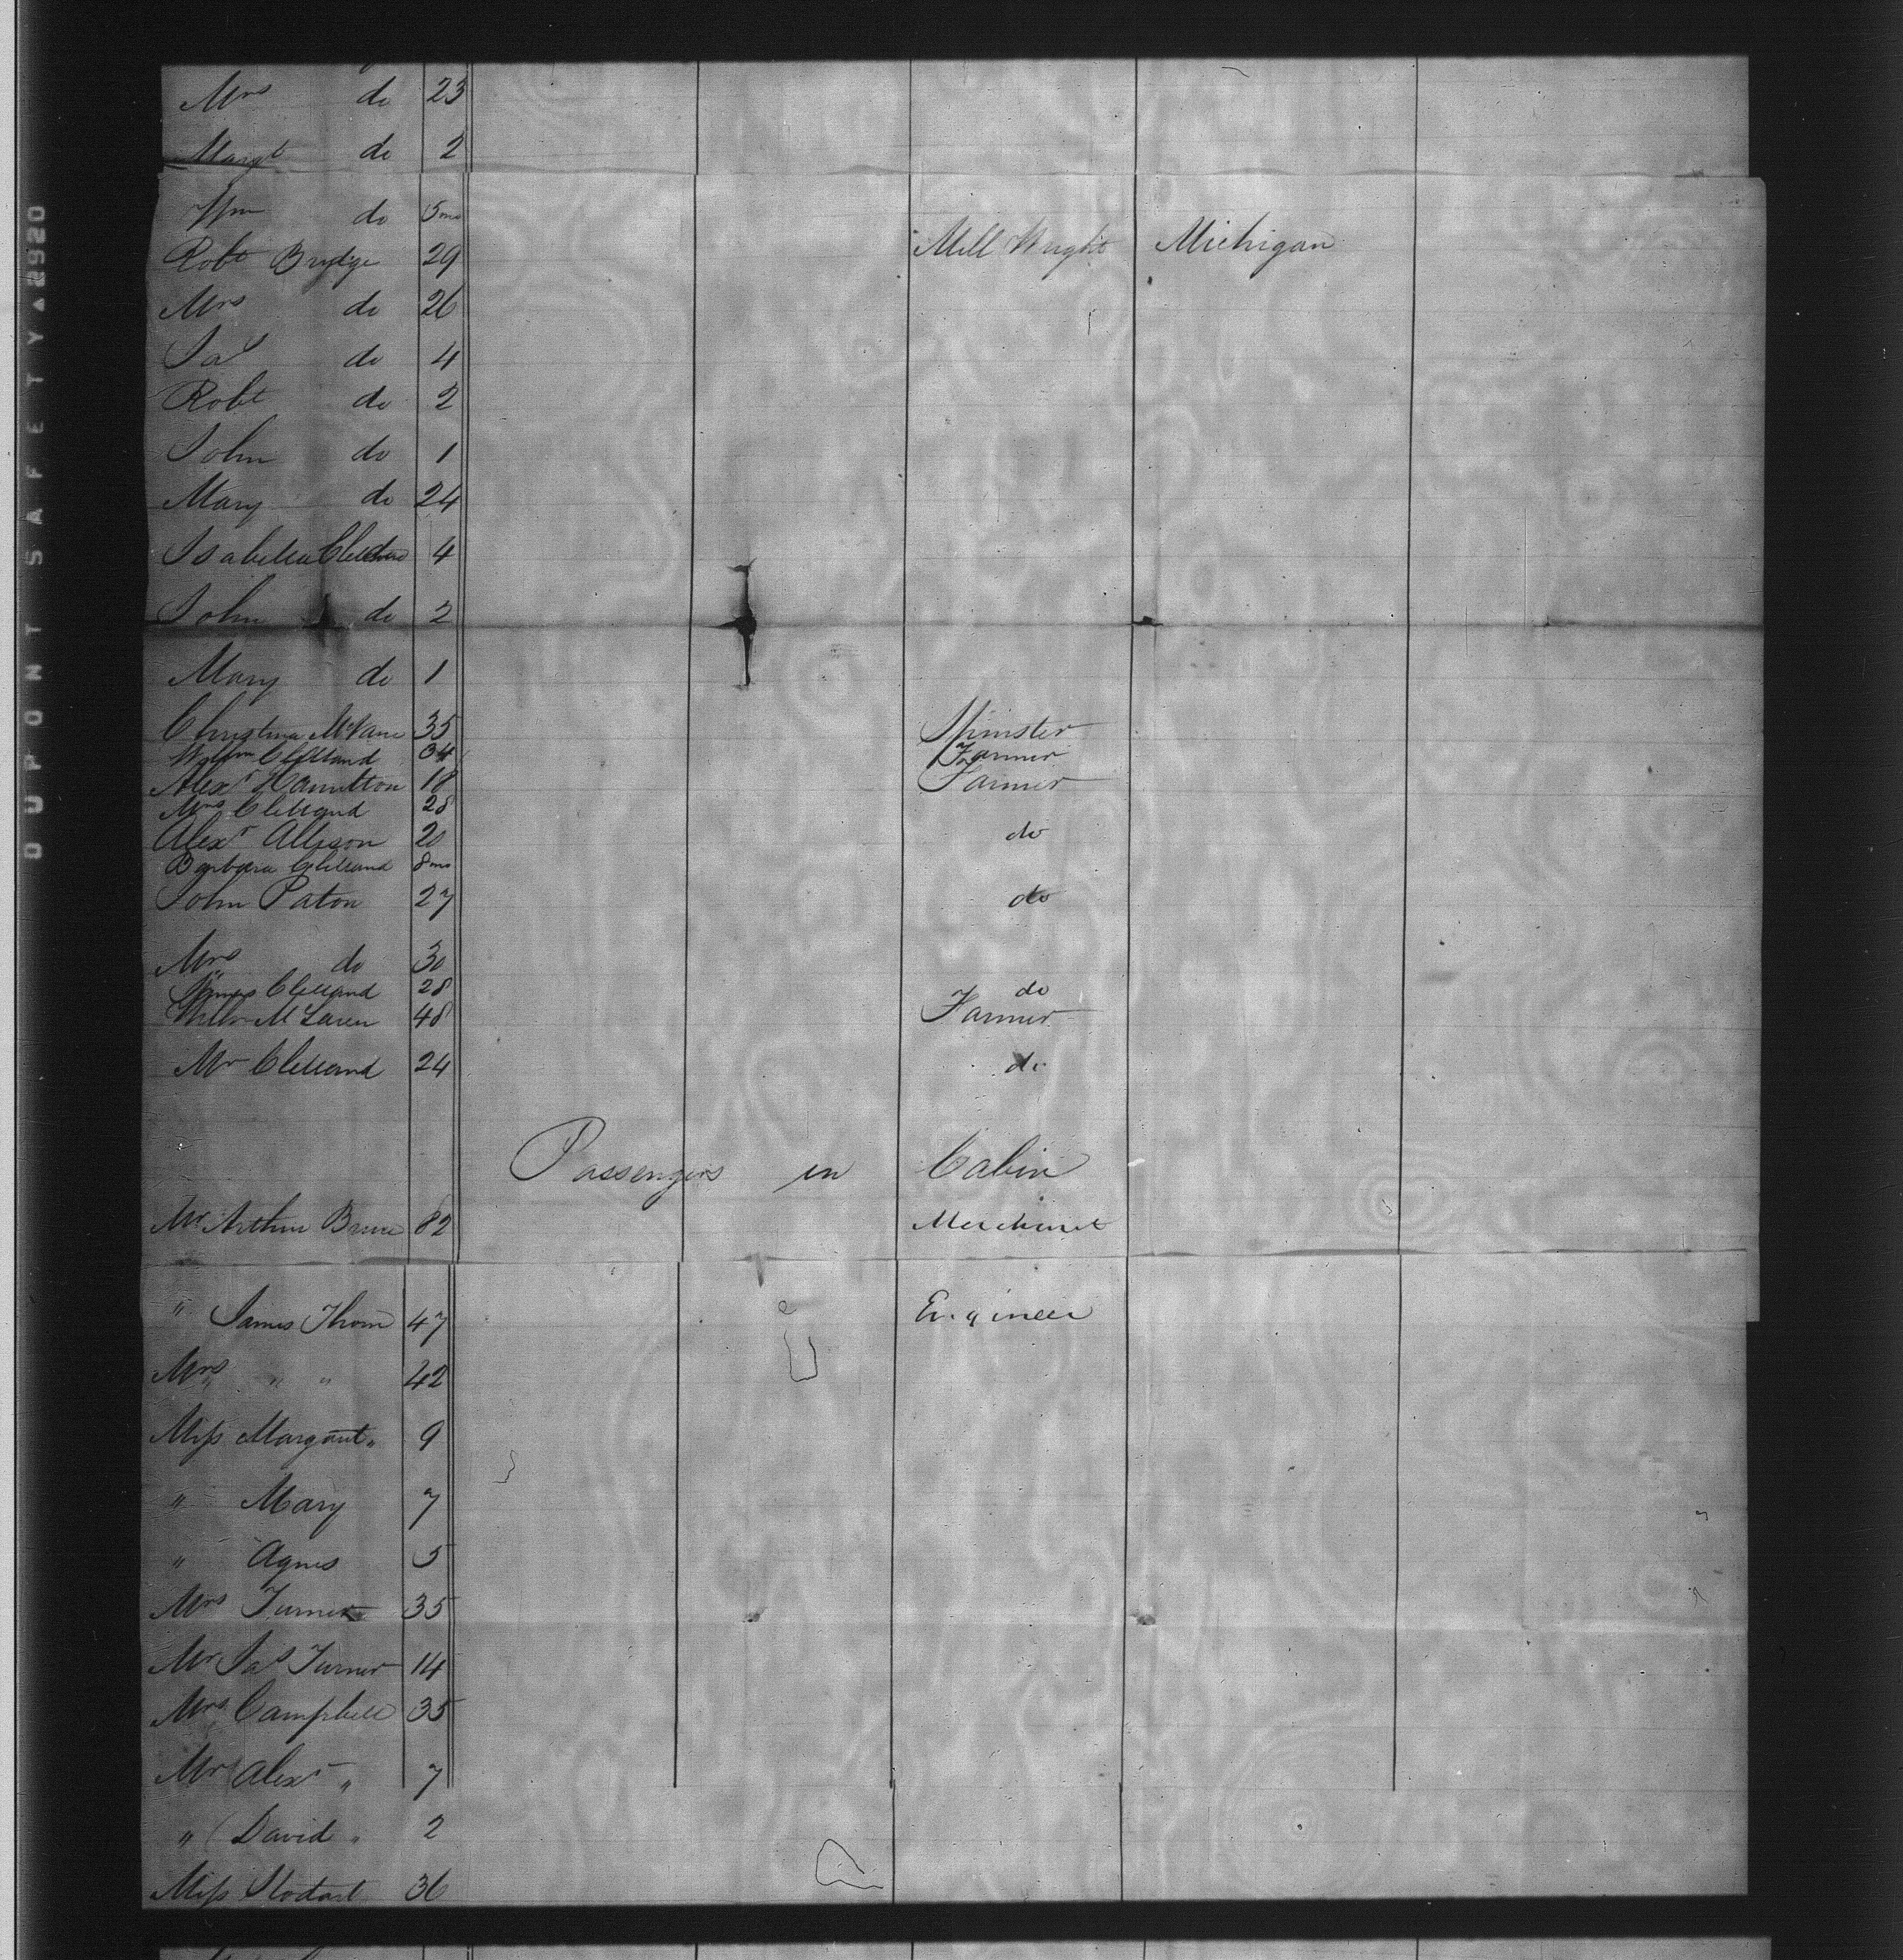 Mrs do 23
Margt do 2
Wm do 5 mo
Robt Brydge 29 Mill Wright Michigan
Mrs do 26
Jas do 4
Robt do 2
John do 1
Mary do 24
Isabella 4
John do 2
Mary do 1
Christina 35 Spinster
Willm Clelland 34 Farmer
Alexr Hamilton 18 Farmer
Mrs Clelland 28
Alexr Allison 20 do
Barbara Clelland 8 mo
John Paton 27 do
Mrs do 30
James Clelland 28 do
Willm McLaren 48 Farmer
Mr Clelland 24 do
Passengers in Cabin
Mr Arthur Bruce 82 Merchant
" James Thom 47 Engineer
Mrs " " " 42
Miss Margaret " 9
" Mary 7
" Agnes 5
Mrs Turner 35
Mr Jas Turner 14
Mrs Campbell 35
Mr Alexr " 7
" David " 2
Miss Stodart 36
DUPONT SAFETY